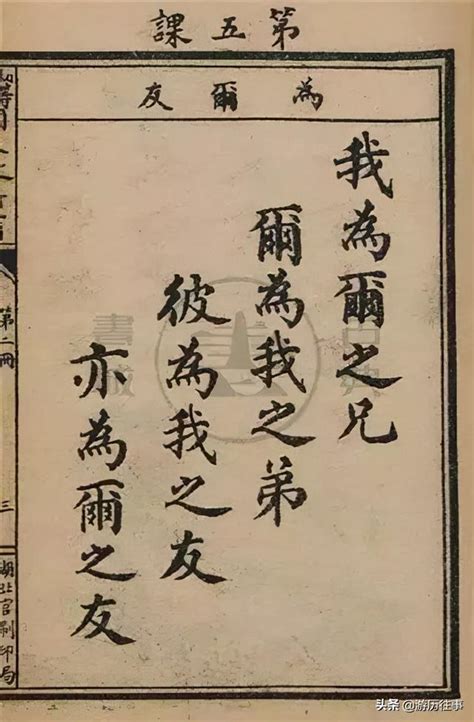 第五課
為爾友
我為爾之兄
爾為我之弟
彼為我之友
亦為爾之友
第二冊
三
湖北官刷印局
書城
古典
头条 @游历往事